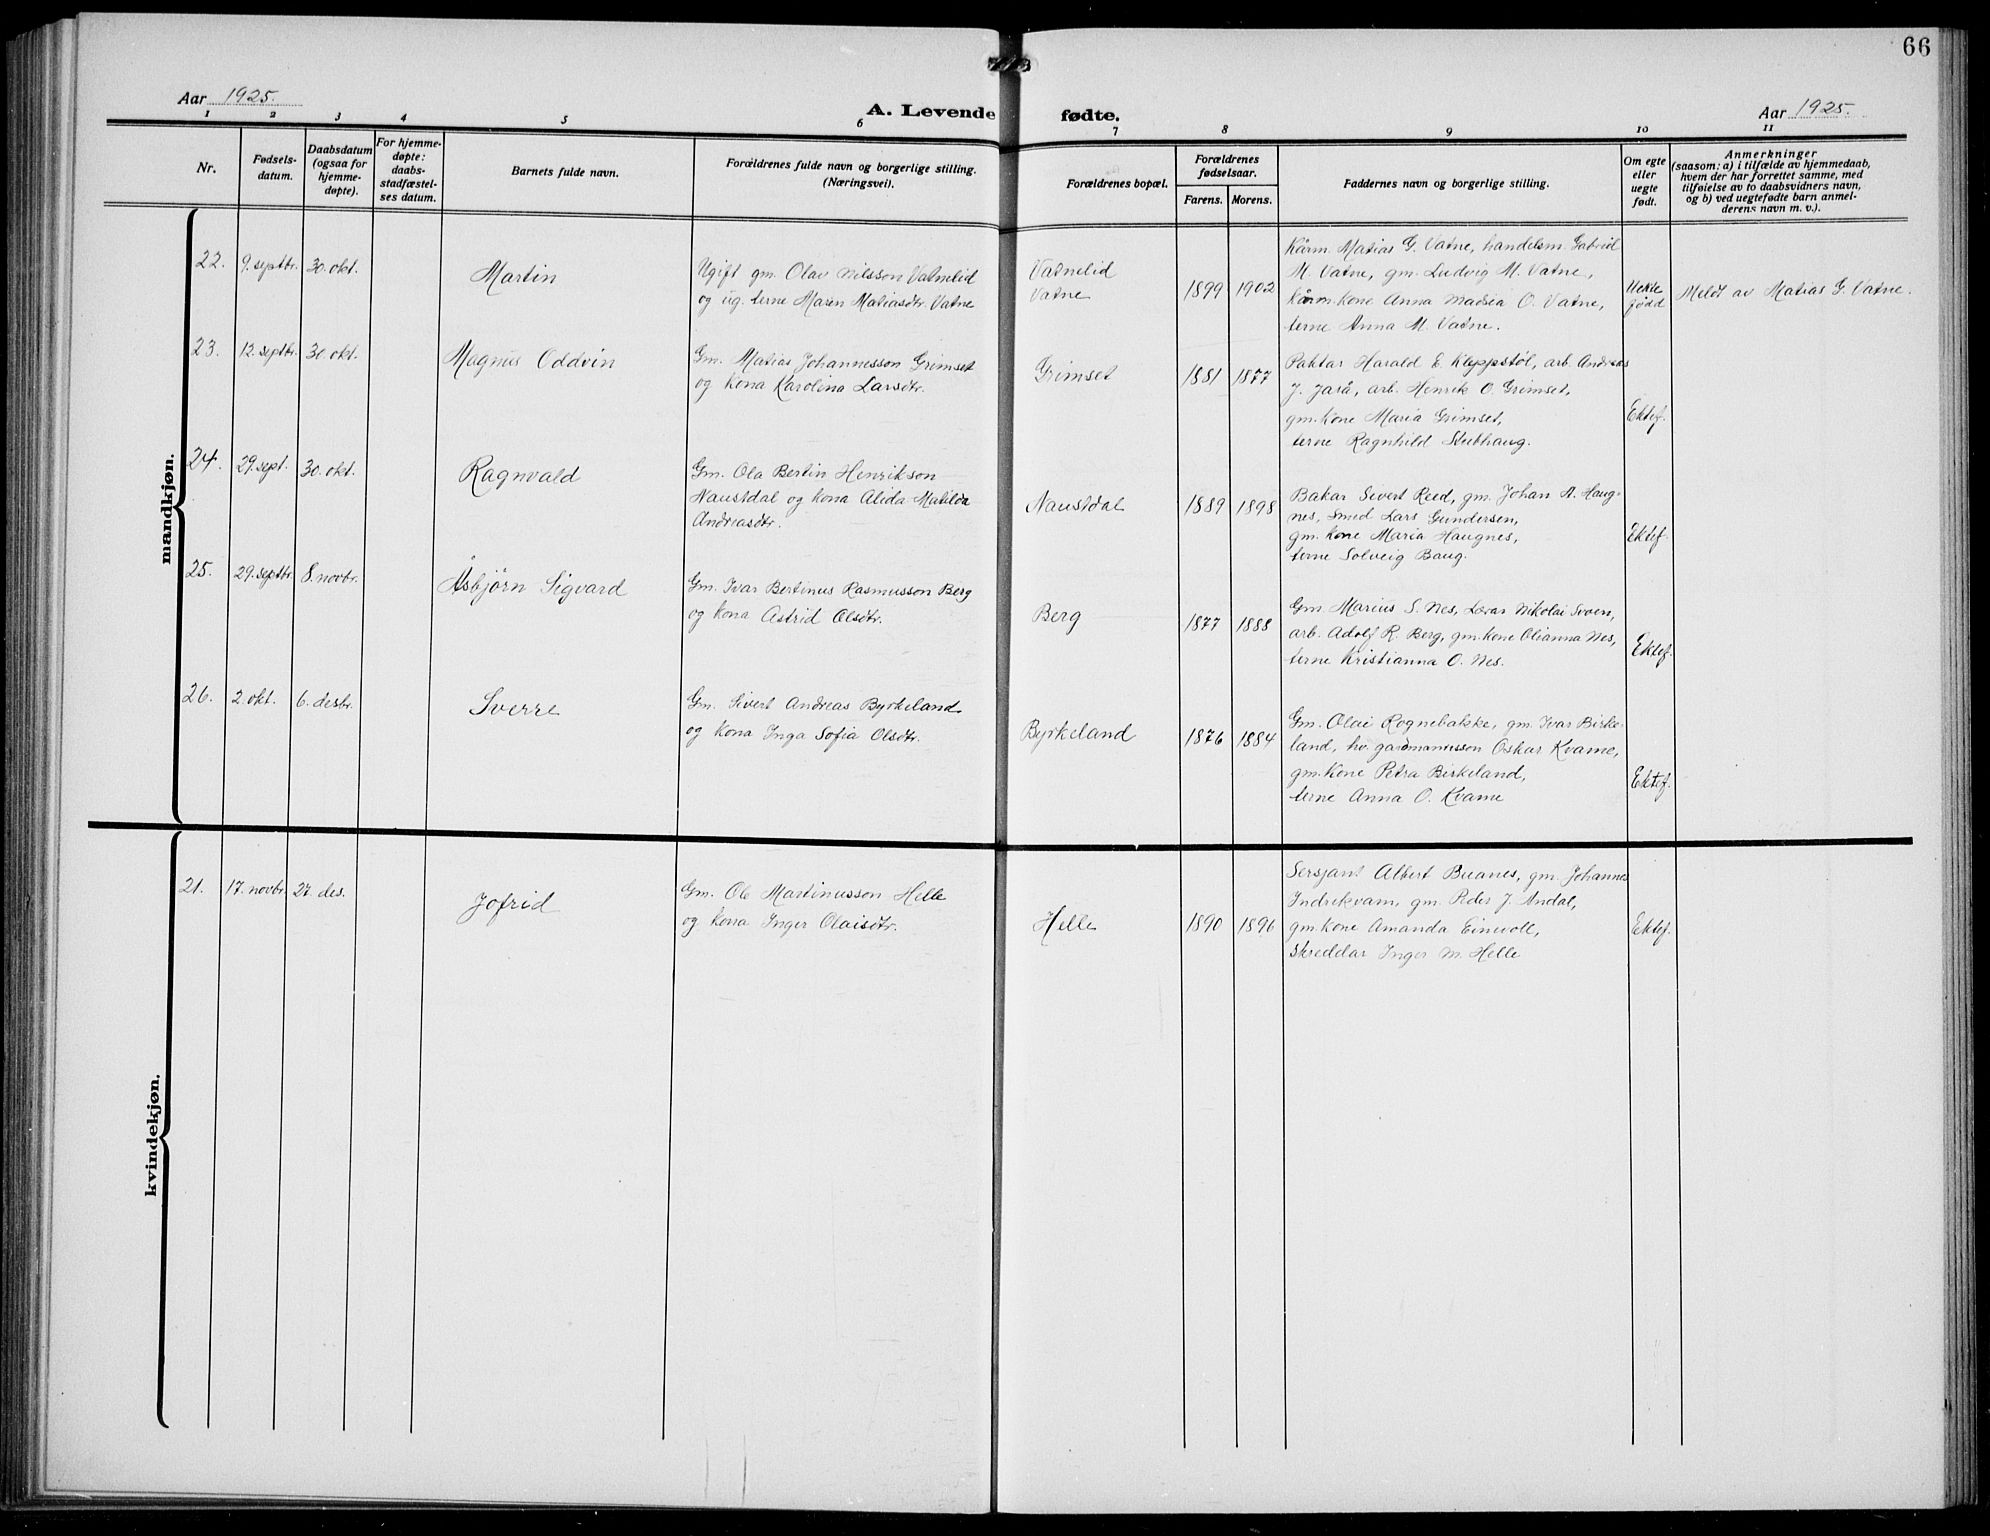 66
Aar 1925.
A. Levende fødte.
Aar 1925.
1 2 3 4 5 6 7 8 9 10 11
Nr.
Fødsels-
datum.
Daabsdatum
(ogsaa for
hjemme-
døpte).
For hjemme-
døpte:
daabs-
stadfæstel-
ses datum.
Barnets fulde navn.
Forældrenes fulde navn og borgerlige stilling.
(Næringsvei).
Forældrenes bopæl.
Forældrenes
fødselsaar.
Farens. Morens.
Faddernes navn og borgerlige stilling.
Om egte
eller
uegte
født.
Anmerkninger
(saasom: a) i tilfælde av hjemmedaab,
hvem der har forrettet samme, med
tilføielse av to daabsvidners navn,
og b) ved uegtefødte barn anmel-
derens navn m. v.).
mandkjøn.
22. 9. septbr. 30. okt.
Martin
Ugift gm. Olav Nilsson Vatnelid
og ug. terne Maren Matiasdtr. Vatne
Vatnelid
Vatne
1899 1902
Kårm. Matias G. Vatne, handelsm. Gabriel
M. Vatne, gm. Ludvig M. Vatne,
kårm. kone Anna Madsia O. Vatne,
terne Anna M. Vatne.
Uekte
fødd
Meldt av Matias G. Vatne.
23. 12. septbr. 30. okt.
Magnus Oddvin
Gm. Matias Johannesson Grimset
og kona Karolina Larsdtr.
Grimset
1881 1877
Paktar Harald E. Kleppstøl, arb. Andreas
J. Jarå, arb. Henrik O. Grimset,
gm. kone Maria Grimset,
terne Ragnhild Stubhaug.
Ektef.
24. 29. sept. 30. okt.
Ragnvald
Gm. Ola Bertin Henrikson
Naustdal og kona Alida Matilda
Andreasdtr.
Naustdal
1889 1898
Bakar Sivert Reed, gm. Johan A. Haug-
nes, Smed Lars Gundersen,
gm. kone Maria Haugnes,
terne Solveig Baug.
Ektef.
25. 29. septbr. 8. novbr.
Åsbjørn Sigvard
Gm. Ivar Bertinus Rasmusson Berg
og kona Astrid Olsdtr.
Berg
1877 1888
Gm Marius S. Nes, Lærar Nikolai Svoen,
arb. Adolf R. Berg, gm. kone Olianna Nes,
terne Kristianna O. Nes.
Ektef.
26. 2. okt. 6. desbr.
Sverre
Gm. Sivert Andreas Byrkeland
og kona Inga Sofia Olsdtr.
Byrkeland
1876 1884
Gm. Olai Rognebakke, gm. Ivar Birke-
land, hv. gardmannsson Oskar Kvame,
gm. kone Petra Birkeland,
terne Anna O. Kvame
Ektef.
kvindekjøn.
21. 17. novbr. 27. des.
Jofrid
Gm. Ole Martinusson Helle
og kona Inger Olaisdtr.
Helle
1890 1896
Sersjant Albert Buanes, gm. Johannes
Indrekvam, gm. Peder J. Andal,
gm. kone Amanda Einevoll,
skreddar Inger M. Helle
Ektef.